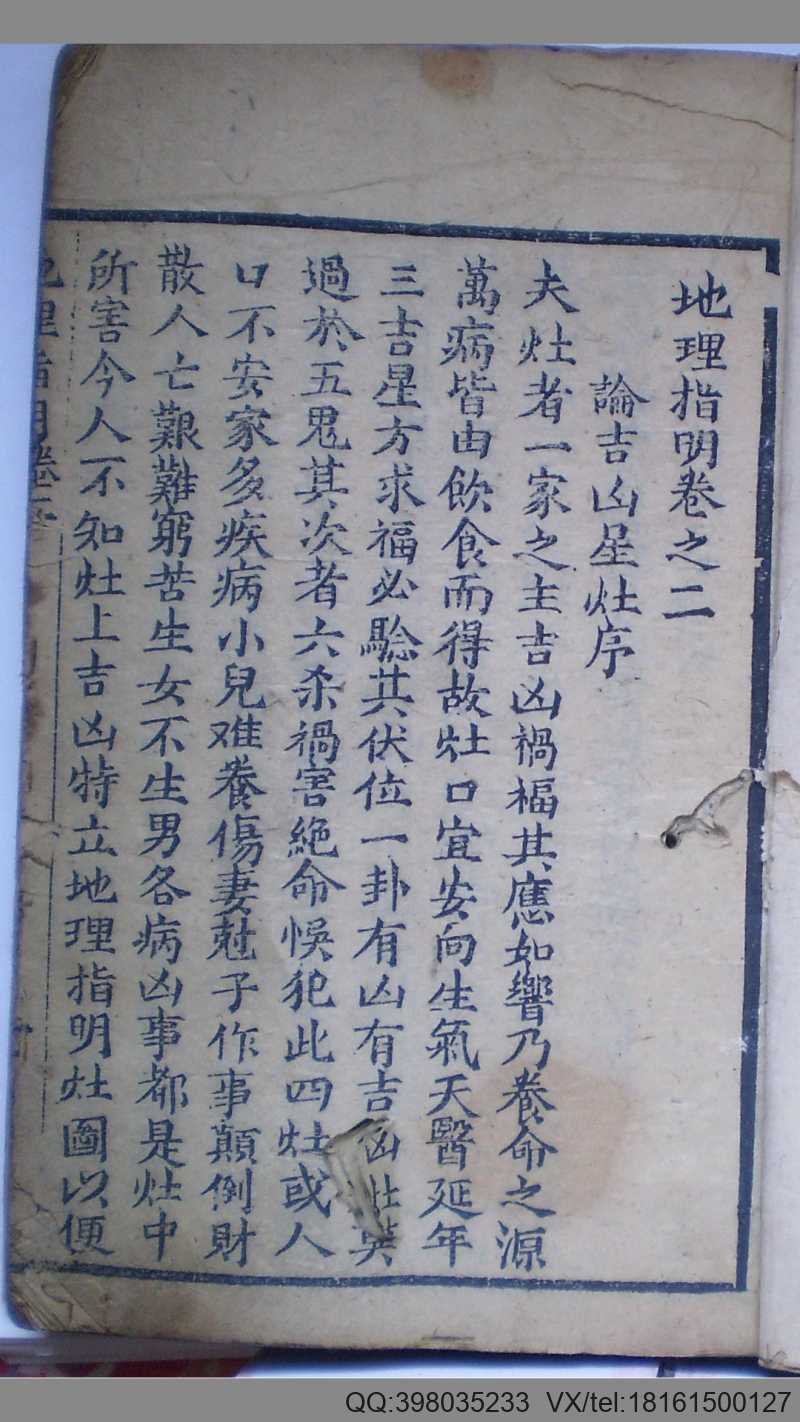 地理指明卷之二
論吉凶星灶序
夫灶者一家之主吉凶禍福其應如響乃養命之源
萬病皆由飲食而得故灶口宜安向生氣天醫延年
三吉星方求福必騐其伏位一卦有凶有吉凶灶莫
過於五鬼其次者六杀禍害絶命悞犯此四灶或人
口不安家多疾病小兒难養傷妻尅子作事顛倒財
散人亡艱難窮苦生女不生男各病凶事都是灶中
所害今人不知灶上吉凶特立地理指明灶圖以便
地理指明卷
QQ:398035233 VX/tel:18161500127